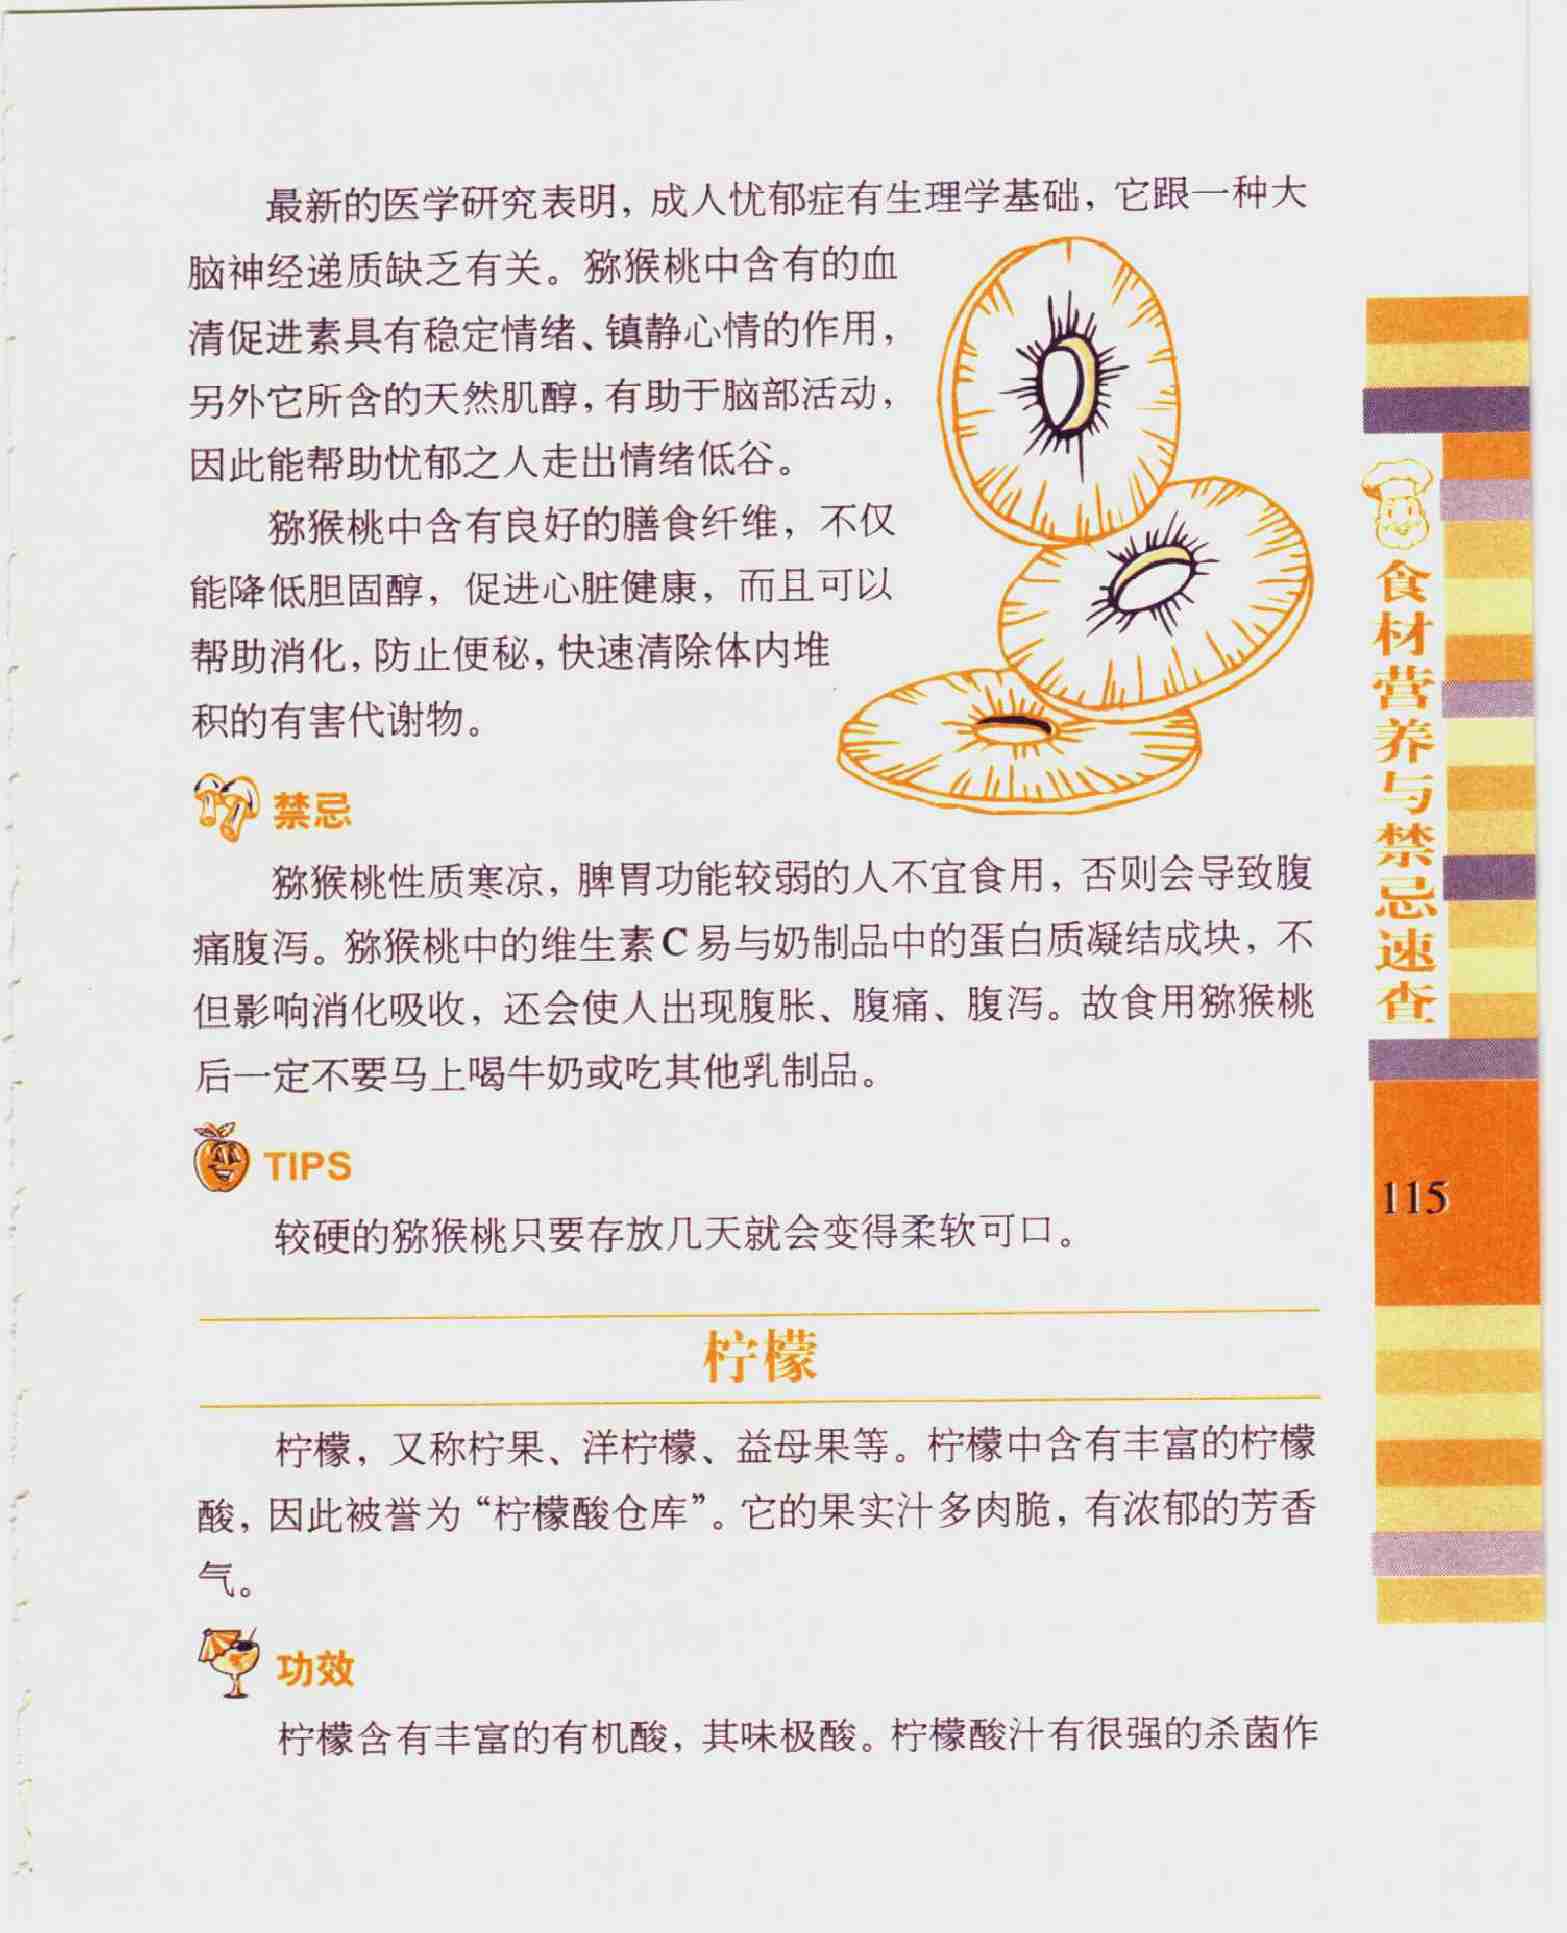 最新的医学研究表明，成人忧郁症有生理学基础，它跟一种大
脑神经递质缺乏有关。猕猴桃中含有的血
清促进素具有稳定情绪、镇静心情的作用，
另外它所含的天然肌醇，有助于脑部活动，
因此能帮助忧郁之人走出情绪低谷。
猕猴桃中含有良好的膳食纤维，不仅
能降低胆固醇，促进心脏健康，而且可以
帮助消化，防止便秘，快速清除体内堆
积的有害代谢物。
禁忌
猕猴桃性质寒凉，脾胃功能较弱的人不宜食用，否则会导致腹
痛腹泻。猕猴桃中的维生素C易与奶制品中的蛋白质凝结成块，不
但影响消化吸收，还会使人出现腹胀、腹痛、腹泻。故食用猕猴桃
后一定不要马上喝牛奶或吃其他乳制品。
TIPS
较硬的猕猴桃只要存放几天就会变得柔软可口。
柠檬
柠檬，又称柠果、洋柠檬、益母果等。柠檬中含有丰富的柠檬
酸，因此被誉为“柠檬酸仓库”。它的果实汁多肉脆，有浓郁的芳香
气。
功效
柠檬含有丰富的有机酸，其味极酸。柠檬酸汁有很强的杀菌作
食材营养与禁忌速查
115